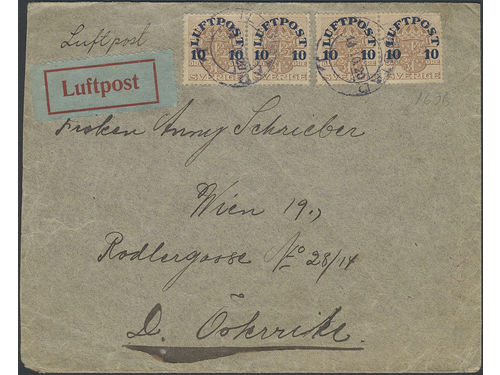 Luftpost
LUFTPOST LUFTPOST LUFTPOST LUFTPOST
10 10 10 10 10 10 10 10
SVERIGE SVERIGE SVERIGE SVERIGE
Luftpost
1636
Fröken Anny Schrieber
Wien 19.,
Rodlergasse No 28/14
D. Österrike.